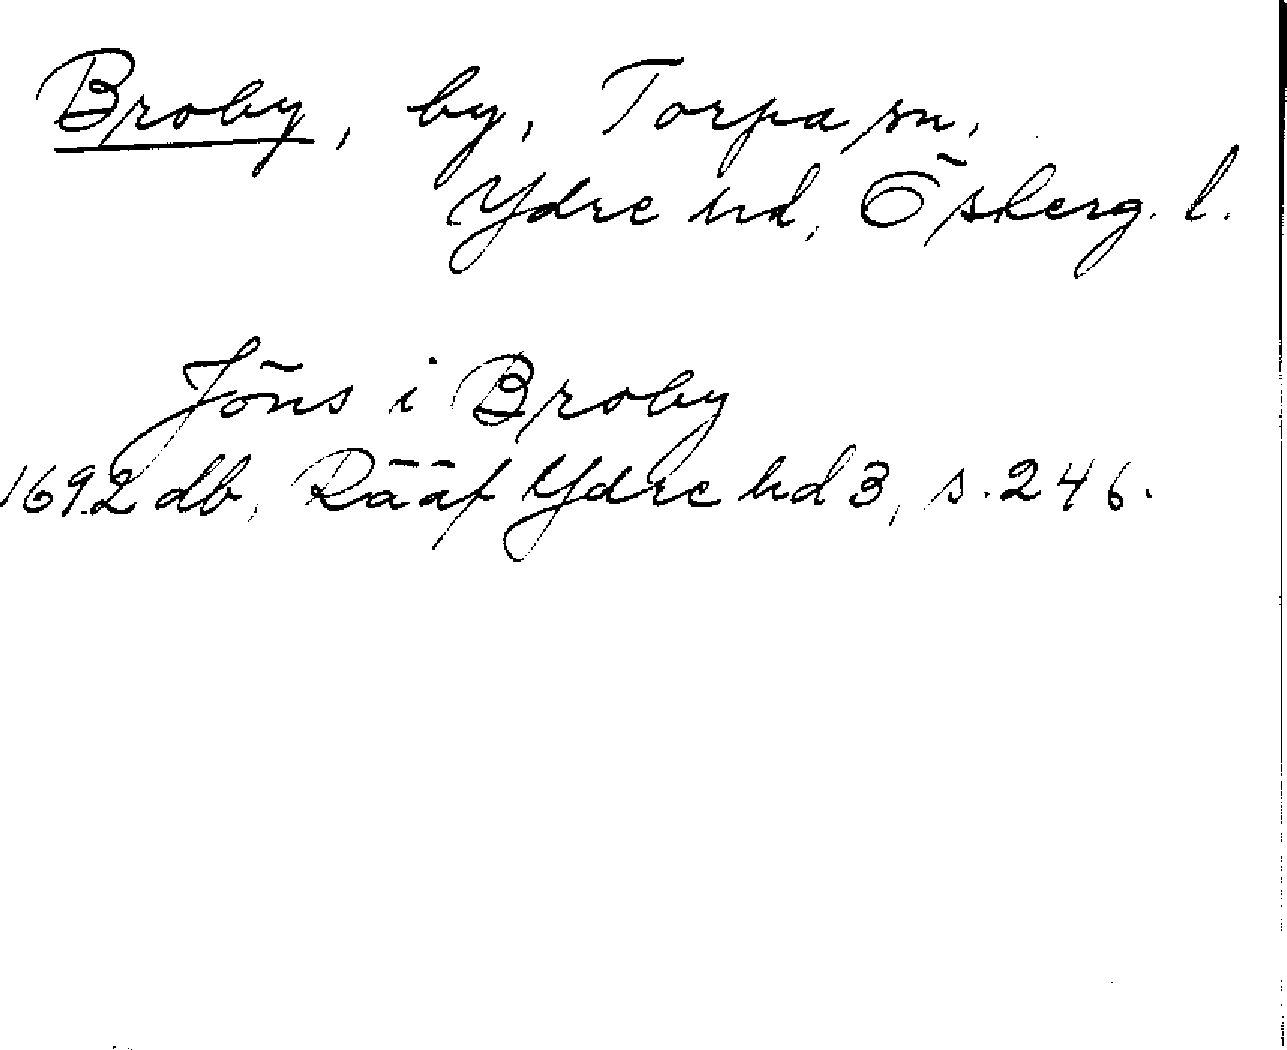 Broby, by, Torpa sn,
Ydre hd, Österg. l.
Jöns i Broby
1692 db, Rääf Ydre hd 3, s. 246.